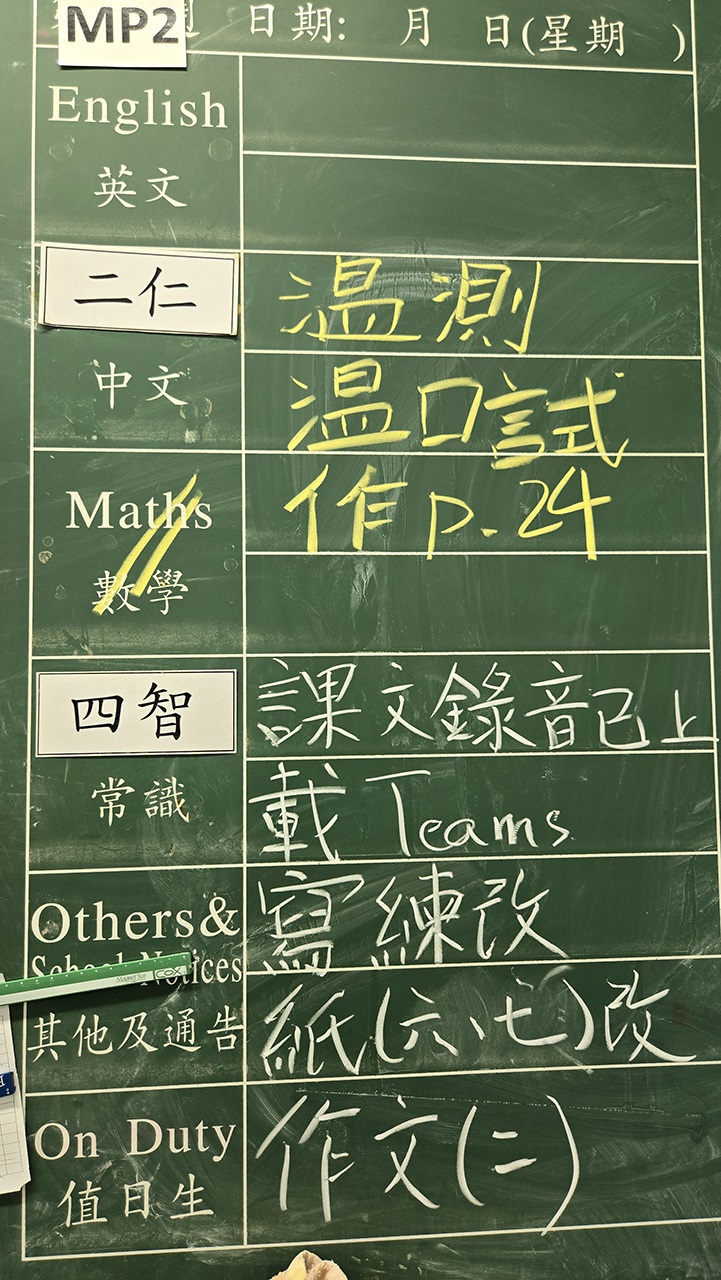 MP2 週 日期: 月 日(星期 )
English
英文
二仁
温測
中文
温口試
Maths
作 p. 24
數學
四智
課文錄音已上
常識
載 Teams
Others&
寫練改
School Notices
其他及通告
紙(六、七)改
On Duty
作文(二)
值日生